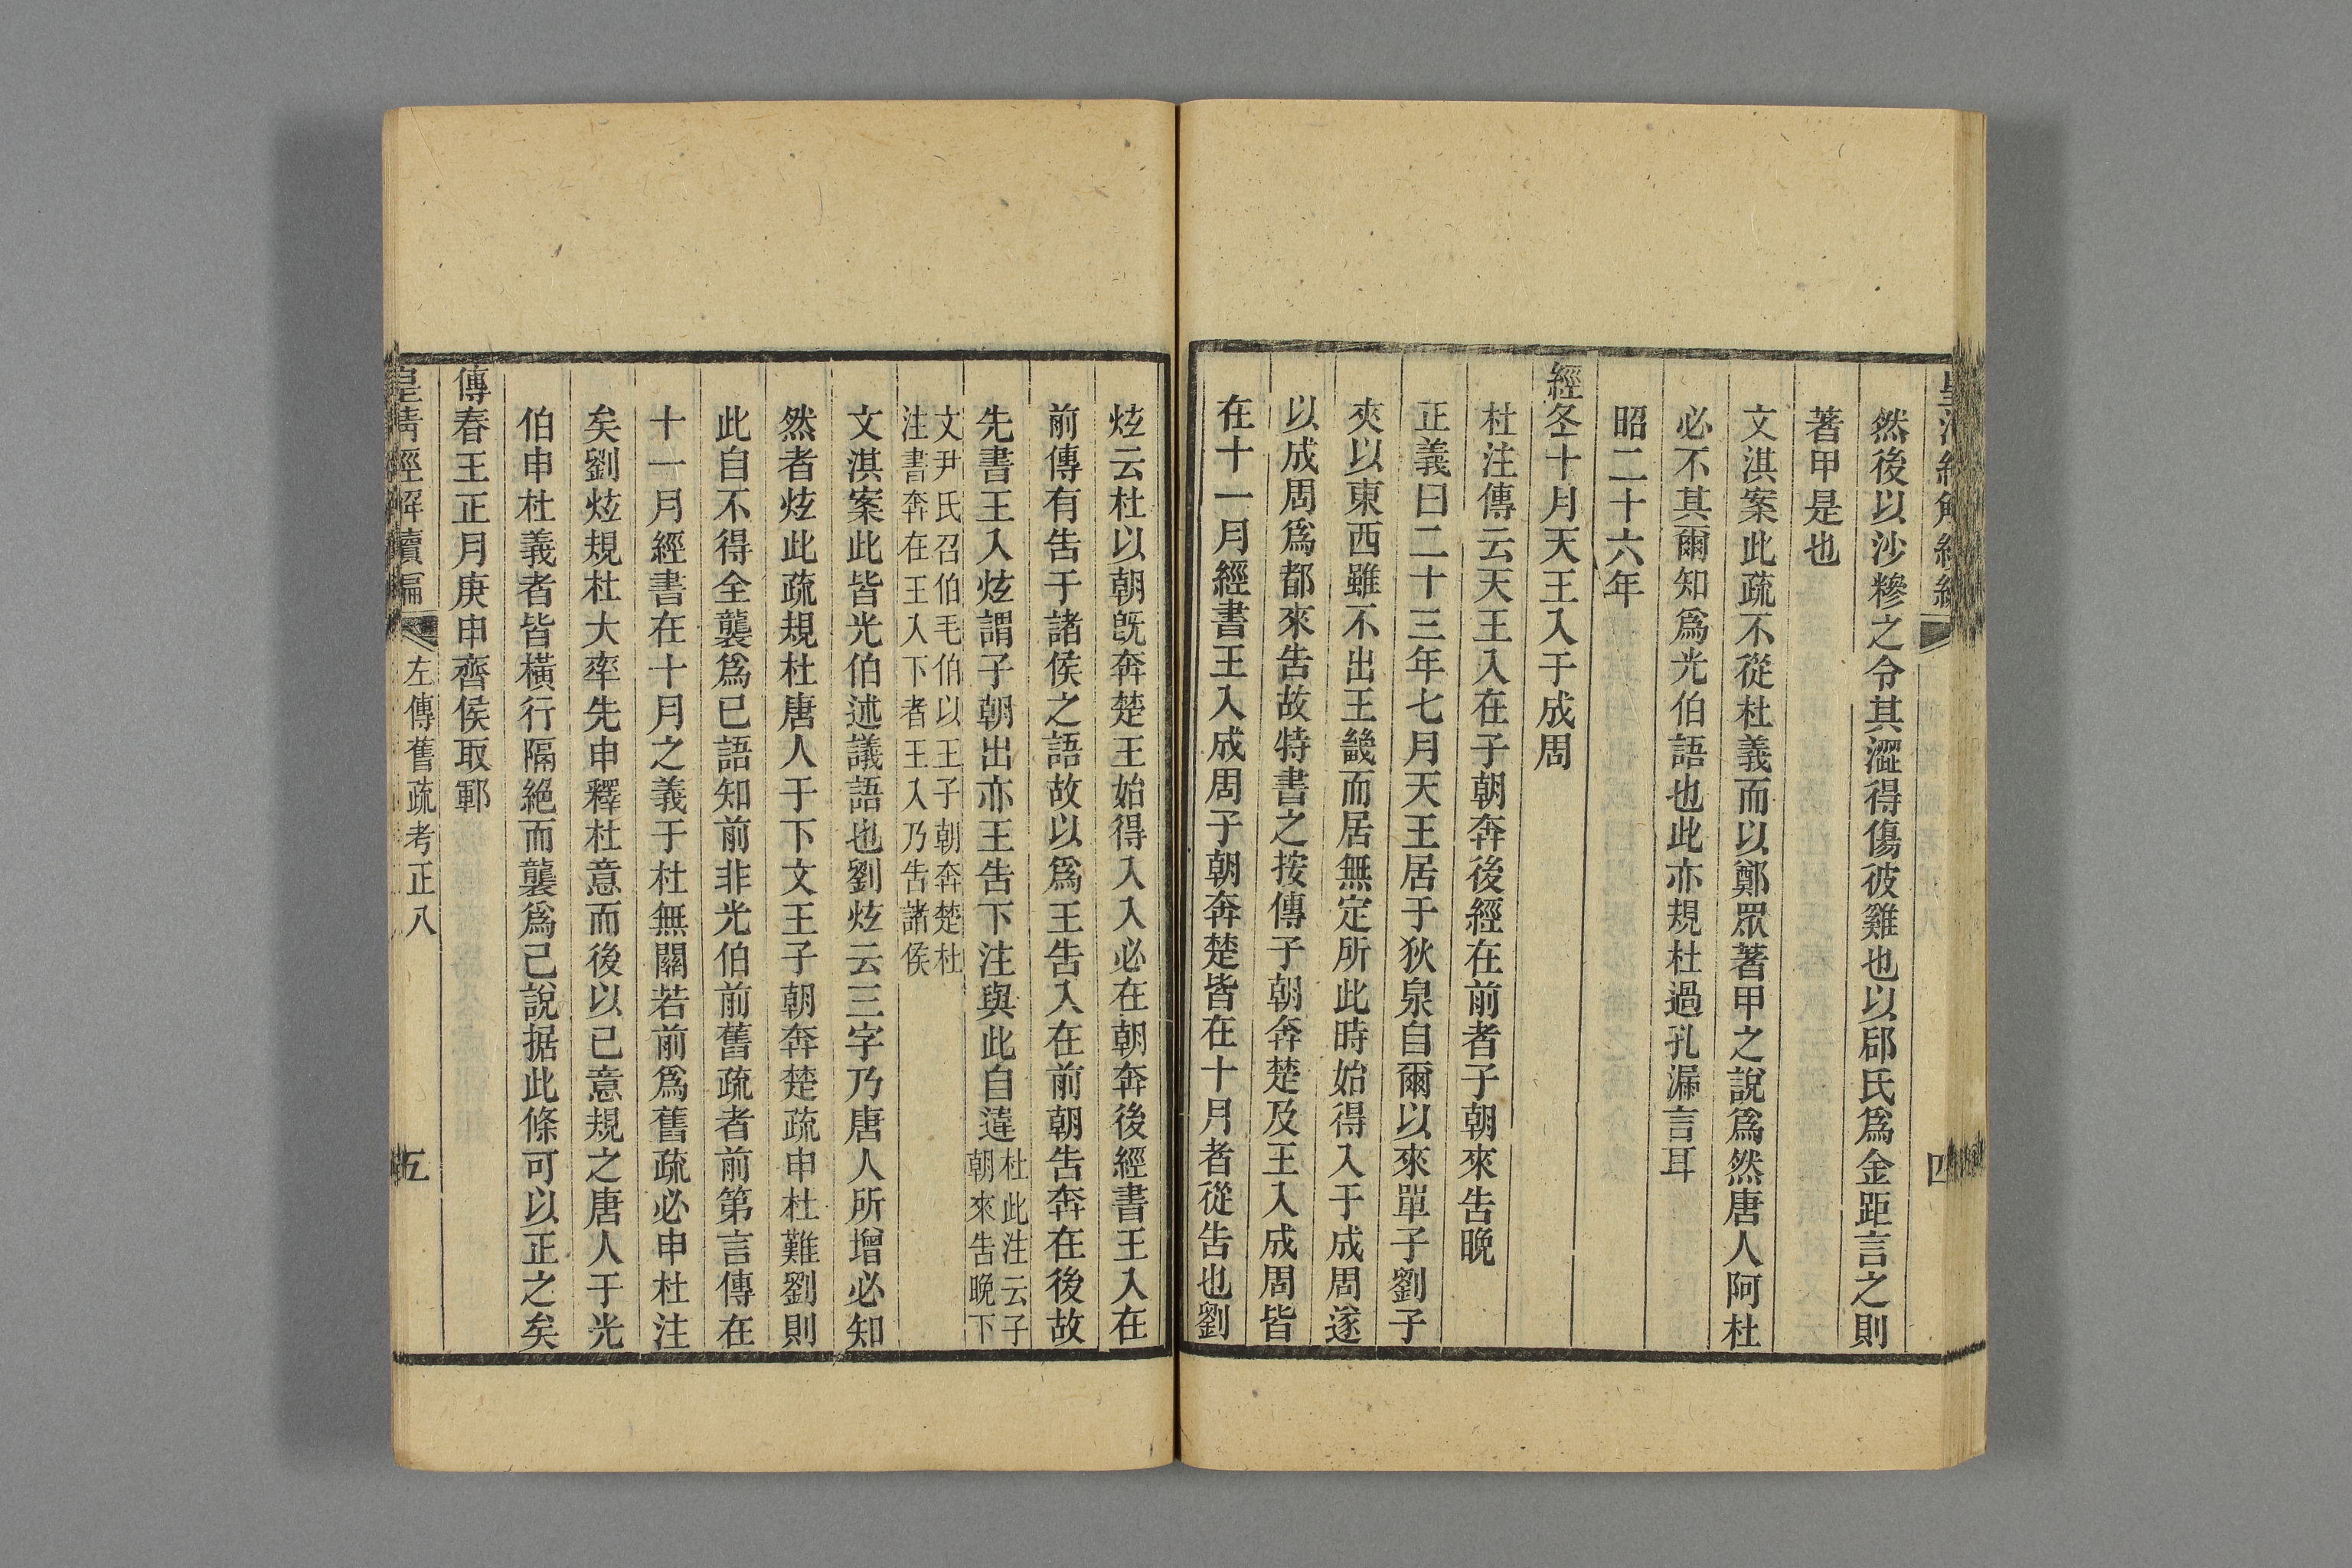 然後以沙糝之令其澀得傷彼雞也以郈氏爲金距言之則
著甲是也
文淇案此疏不從杜義而以鄭眾著甲之說爲然唐人阿杜
必不其爾知爲光伯語也此亦規杜過孔漏言耳
昭二十六年
經冬十月天王入于成周
杜注傳云天王入在子朝奔後經在前者子朝來告晚
正義曰二十三年七月天王居于狄泉自爾以來單子劉子
夾以東西雖不出王畿而居無定所此時始得入于成周遂
以成周爲都來告故特書之按傳子朝奔楚及王入成周皆
在十一月經書王入成周子朝奔楚皆在十月者從告也劉
四
炫云杜以朝旣奔楚王始得入入必在朝奔後經書王入在
前傳有告于諸侯之語故以爲王告入在前朝告奔在後故
先書王入炫謂子朝出亦王告下注與此自違杜此注云子
朝來告晚下
文尹氏召伯毛伯以王子朝奔楚杜
注書奔在王入下者王入乃告諸侯
文淇案此皆光伯述議語也劉炫云三字乃唐人所增必知
然者炫此疏規杜唐人于下文王子朝奔楚疏申杜難劉則
此自不得全襲爲已語知前非光伯前舊疏者前第言傳在
十一月經書在十月之義于杜無關若前爲舊疏必申杜注
矣劉炫規杜大率先申釋杜意而後以已意規之唐人于光
伯申杜義者皆橫行隔絕而襲爲己說据此條可以正之矣
傳春王正月庚申齊侯取鄆
皇清經解續編 左傳舊疏考正八 五